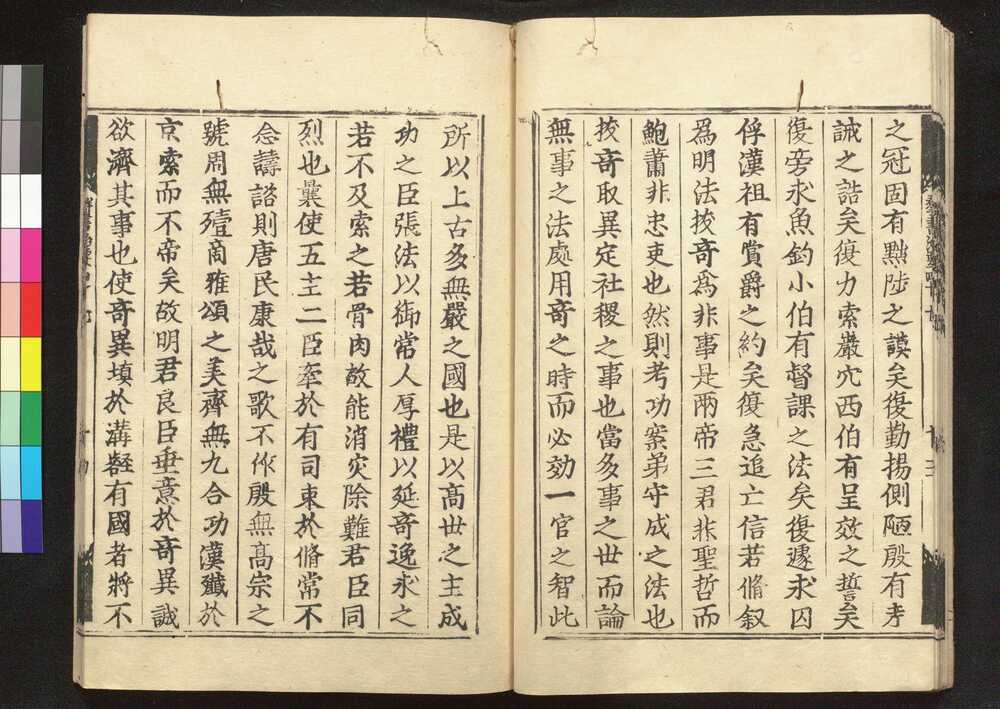 之冠固有黜陟之謨矣復勤揚側陋殷有考
誡之誥矣復力索巖穴西伯有呈效之誓矣
復旁求魚釣小伯有督課之法矣復遽求囚
俘漢祖有賞爵之約矣復急追亡信若脩叙
爲明法拔竒爲非事是兩帝三君非聖哲而
鮑蕭非忠吏也然則考功案弟守成之法也
拔竒取異定社稷之事也當多事之世而論
無事之法處用竒之時而必効一官之智此
所以上古多無嚴之國也是以高世之主成
功之臣張法以御常人厚禮以延竒逸求之
若不及索之若骨肉故能消灾除難君臣同
烈也曩使五主二臣牽於有司束於脩常不
念疇諮則唐民康哉之歌不作殷無高宗之
號周無殪商雅頌之美齊無九合功漢殲於
京索而不帝矣故明君良臣垂意於竒異誠
欲濟其事也使竒異填於溝壑有國者將不